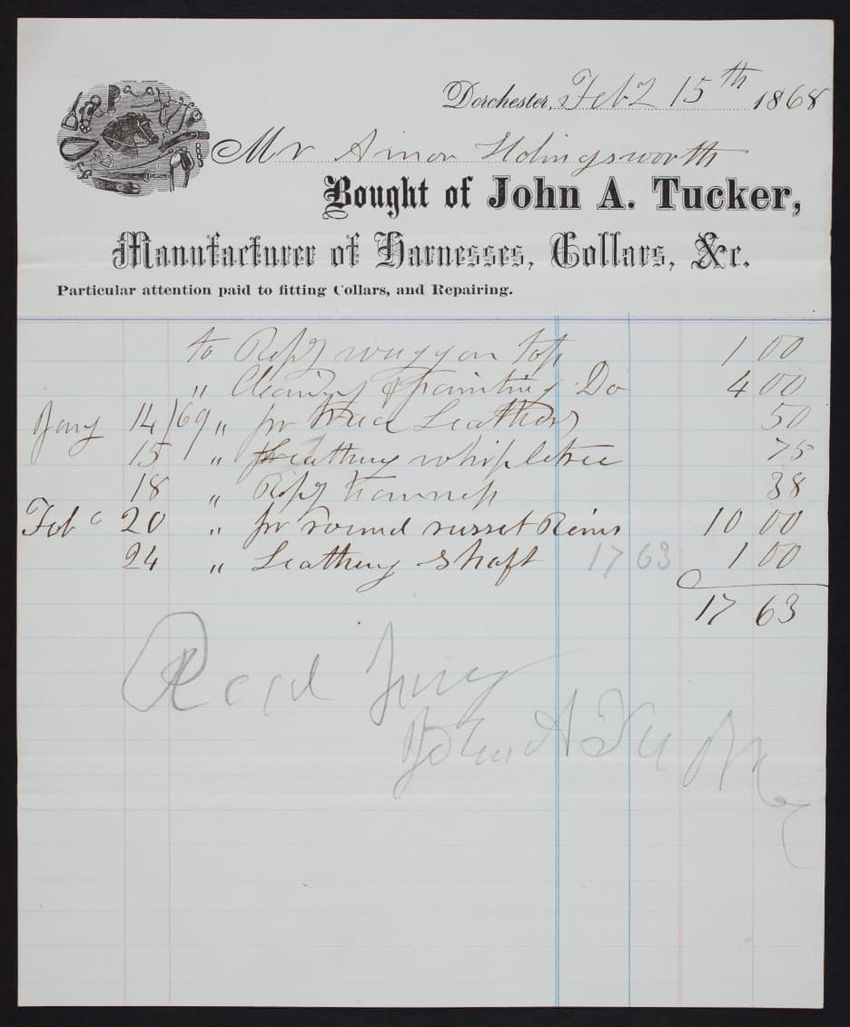 Dorchester, Feby 15th 1868
Mr Amor Holingsworth
Bought of John A. Tucker,
Manufacturer of Harnesses, Collars, &c.
Particular attention paid to fitting Collars, and Repairing.
to Repg waggon top 1 00
" Cleaning & painting Do 4 00
Jany 14/69 " pr Leathers 50
15 " Leathing whipletree 75
18 " Repg harness 38
Feb 20 " pr round russet Reins 10 00
24 " Leathing shaft 17 63 1 00
17 63
Recd
John A Tucker